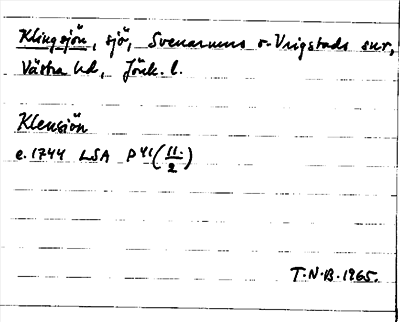 Klingsjön, sjö, Svenarums o. Vrigstads snr,
Västra hd, Jönk. l.
Klensiön
e. 1744 LSA P 41 (11/2)
T.N.B. 1965.